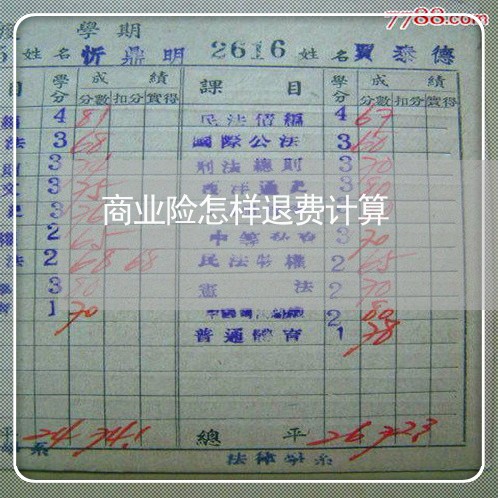 7788.com
學期
姓名 忻鼎明 2616 姓名 賈泰德
目 學分 成績 課目 學分 成績
分數 扣分 實得 分數 扣分 實得
4 81 民法債編 4 67
法 3 68 國際公法 3 60
3 刑法總則 3 70
3 75 西洋通史 3
商业险怎样退费计算
2 65 3 70
法 2 68 68 民法物權 2 65
3 80 憲法 2 70
1 70 2 80
普通體育 1 78
平 24 74.1 總平 26 72.3
系 法律學系